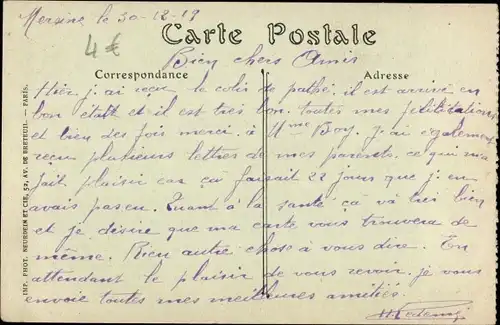 Mersine le 30-12-19
4€
Carte Postale
Bien chers Amis
Correspondance
Adresse
Hier j'ai reçu le colis de pathé. il est arrivé en
bon état et il est très bon. toutes mes félicitations
et bien des fois merci. à Mme Boy. j'ai également
reçu plusieurs lettres de mes parents. ce qui m'a
fait plaisir car ça faisait 22 jours que j'en
avais pas eu. Quant à la santé ça va très bien
et je désire que ma carte vous trouvera de
même. Rien autre chose à vous dire. En
attendant le plaisir de vous revoir. je vous
envoie toutes mes meilleures amitiés.
IMP. PHOT. NEURDEIN ET CIE, 52, AV. DE BRETEUIL. — PARIS.